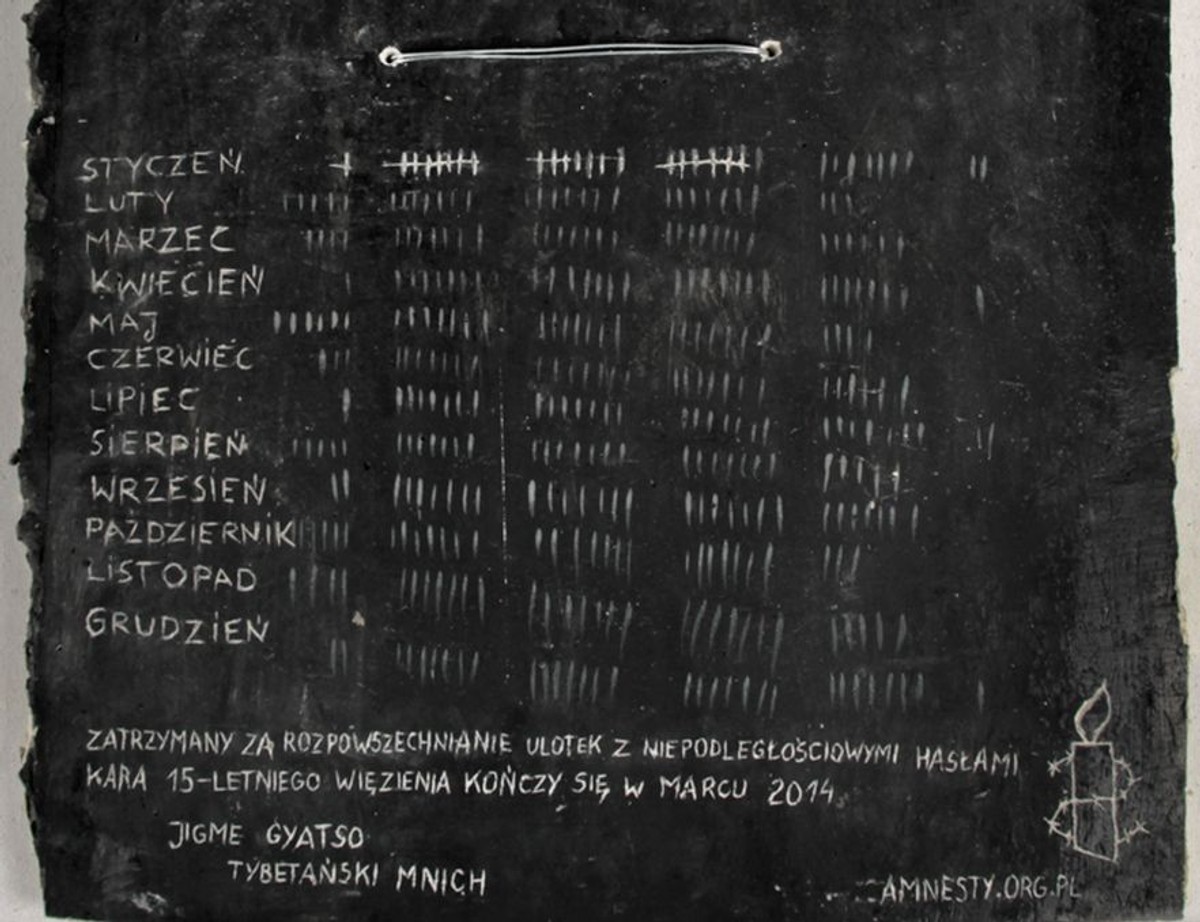 STYCZEŃ
LUTY
MARZEC
KWIECIEŃ
MAJ
CZERWIEC
LIPIEC
SIERPIEŃ
WRZESIEŃ
PAŹDZIERNIK
LISTOPAD
GRUDZIEŃ
ZATRZYMANY ZA ROZPOWSZECHNIANIE ULOTEK Z NIEPODLEGŁOŚCIOWYMI HASŁAMI
KARA 15-LETNIEGO WIĘZIENIA KOŃCZY SIĘ W MARCU 2014
JIGME GYATSO
TYBETAŃSKI MNICH
AMNESTY.ORG.PL